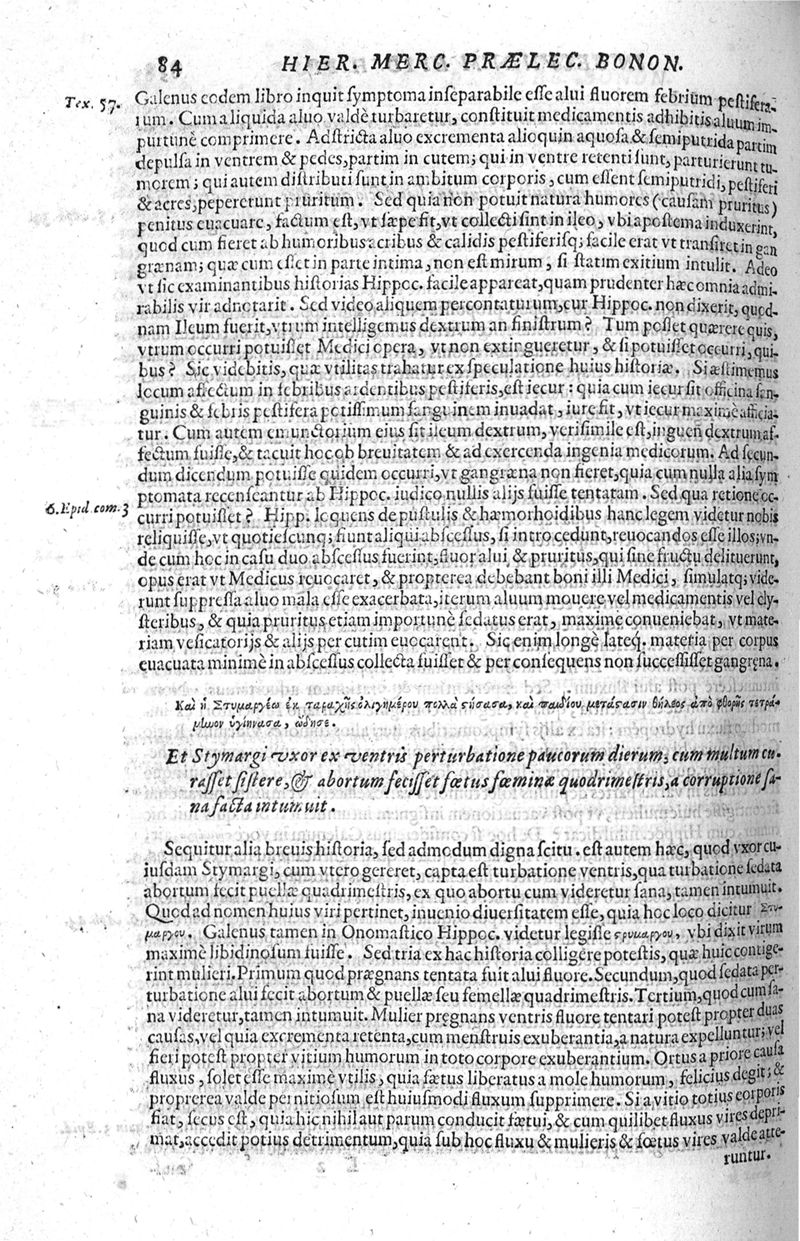 84 HIER. MERC. PRÆLEC. BONON.
Tex. 57. Galenus eodem libro inquit ſymptoma inſeparabile eſſe alui fluorem febrium peſtifera-
rum. Cum a liquida aluo valdè turbaretur, conſtituit medicamentis adhibitis aluum im-
purtunè comprimere. Adſtricta aluo excrementa alioquin aquoſa & ſemiputrida partim
depulſa in ventrem & pedes, partim in cutem; qui in ventre retenti ſunt, parturierunt tu-
morem; qui autem diſtributi ſunt in ambitum corporis, cum eſſent ſemiputridi, peſtiferi
& acres, pepererunt pruritum. Sed quia non potuit natura humores (cauſam pruritus)
penitus euacuare, factum eſt, vt ſæpe fit, vt collecti ſint in ileo, vbi apoſtema induxerint,
quod cum fieret ab humoribus acribus & calidis peſtiferiſq; facile erat vt tranſiret in gan
grænam; quæ cum eſſet in parte intima, non eſt mirum, ſi ſtatim exitium intulit. Adeo
vt ſic examinantibus hiſtorias Hippoc. facile appareat, quam prudenter hæc omnia admi-
rabilis vir adnotarit. Sed video aliquem percontaturum, cur Hippoc. non dixerit, quod-
nam Ileum fuerit, vtrum intelligemus dextrum an ſiniſtrum? Tum poſſet quærere quis,
vtrum occurri potuiſſet Medici opera, vt non extingueretur, & ſi potuiſſet occurri, qui-
bus? Sic videbitis, quæ vtilitas trahatur ex ſpeculatione huius hiſtoriæ. Si æſtimemus
locum affectum in febribus ardentibus peſtiferis, eſt iecur: quia cum iecur ſit officina ſan-
guinis & febris peſtifera potiſſimum ſanguinem inuadat, iure fit, vt iecur maxime afficia-
tur. Cum autem emunctorium eius ſit ileum dextrum, veriſimile eſt, inguen dextrum af-
fectum fuiſſe, & tacuit hoc ob breuitatem & ad exercenda ingenia medicorum. Ad ſecun-
dum dicendum potuiſſe quidem occurri, vt gangræna non fieret, quia cum nulla alia ſym
ptomata recenſeantur ab Hippoc. iudico nullis alijs fuiſſe tentatam. Sed qua retione oc-
6. Epid. com. 3 curri potuiſſet? Hipp. loquens de puſtulis & hæmorhoidibus hanc legem videtur nobis
reliquiſſe, vt quotieſcunq; fiunt aliqui abſceſſus, ſi intro cedunt, reuocandos eſſe illos; vn-
de cum hoc in caſu duo abſceſſus fuerint, fluor alui, & pruritus, qui ſine fructu delituerunt,
opus erat vt Medicus reuocaret, & propterea debebant boni illi Medici, ſimulatq; vide-
runt ſuppreſſa aluo mala eſſe exacerbata, iterum aluum mouere vel medicamentis vel cly-
ſteribus, & quia pruritus etiam importunè ſedatus erat, maxime conueniebat, vt mate-
riam veſicatorijs & alijs per cutim euocarent. Sic enim longè lateq. materia per corpus
euacuata minimè in abſceſſus collecta fuiſſet & per conſequens non ſucceſſiſſet gangræna.
Και ἡ Στυμαργέω ἐκ ταραχῆς ὀλιγημέρου πολλὰ στήσασα, καὶ παιδίου μετάστασιν θήλεος ἀπὸ φθορῆς τετρα-
μίωον ὑγιήνασα, ᾤδησε.
Et Stymargi vxor ex ventris perturbatione paucorum dierum, cum multum cu-
raſſet ſiſtere, & abortum feciſſet fœtus fœminæ quodrimeſtris, a corruptione ſa-
na facta intumuit.
Sequitur alia breuis hiſtoria, ſed admodum digna ſcitu. eſt autem hæc, quod vxor cu-
iuſdam Stymargi, cum vtero gereret, capta eſt turbatione ventris, qua turbatione ſedata
abortum fecit puellæ quadrimeſtris, ex quo abortu cum videretur ſana, tamen intumuit.
Quod ad nomen huius viri pertinet, inuenio diuerſitatem eſſe, quia hoc loco dicitur Στυ-
μαργου. Galenus tamen in Onomaſtico Hippoc. videtur legiſſe στρυμαργου, vbi dixit virum
maximè libidinoſum fuiſſe. Sed tria ex hac hiſtoria colligere poteſtis, quæ huic contige-
rint mulieri. Primum quod prægnans tentata fuit alui fluore. Secundum, quod ſedata per-
turbatione alui fecit abortum & puellæ ſeu femellæ quadrimeſtris. Tertium, quod cum ſa-
na videretur, tamen intumuit. Mulier pręgnans ventris fluore tentari poteſt propter duas
cauſas, vel quia excrementa retenta, cum menſtruis exuberantia, a natura expelluntur; vel
fieri poteſt propter vitium humorum in toto corpore exuberantium. Ortus a priore cauſa
fluxus, ſolet eſſe maximè vtilis, quia fætus liberatus a mole humorum, felicius degit; &
proprerea valde pernitioſum eſt huiuſmodi fluxum ſupprimere. Si a vitio totius corporis
fiat, ſecus eſt, quia hic nihil aut parum conducit fætui, & cum quilibet fluxus vires depri-
mat, accedit potius detrimentum, quia ſub hoc fluxu & mulieris & fœtus vires valde atte-
runtur.